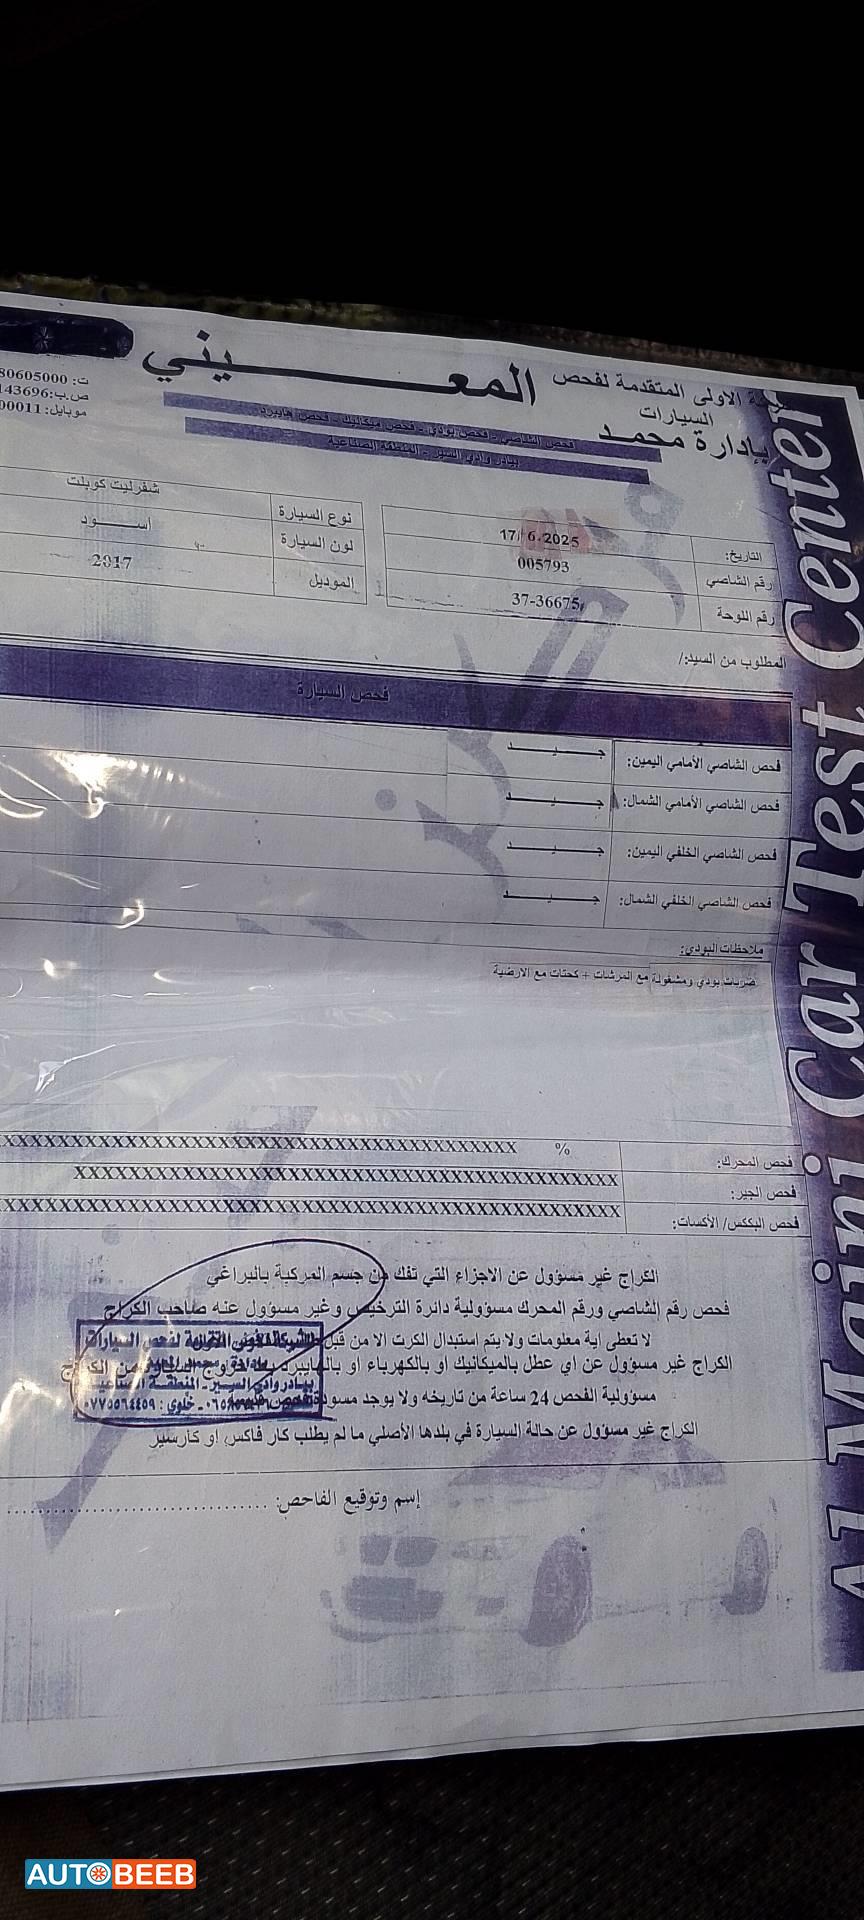 الاولى المتقدمة لفحص
السيارات
المعـــيني
بإدارة محمد
فحص الشاصي - فحص بودي - فحص ميكانيك - فحص هايبرد
بيادر وادي السير - المنطقة الصناعية
ت: 80605000
ص.ب: 143696
موبايل: 00011
التاريخ: 17/6.2025
رقم الشاصي 005793
رقم اللوحة 37-36675
نوع السيارة شفرليت كوبلت
لون السيارة اســـود
الموديل 2017
المطلوب من السيد:/
فحص السيارة
فحص الشاصي الأمامي اليمين: جـــيـــد
فحص الشاصي الأمامي الشمال: جـــيـــد
فحص الشاصي الخلفي اليمين: جـــيـــد
فحص الشاصي الخلفي الشمال: جـــيـــد
ملاحظات البودي:
ضربات بودي ومشغولة مع المرشات + كحتات مع الارضية
فحص المحرك: %
فحص الجير:
فحص البككس/ الأكسات:
الكراج غير مسؤول عن الاجزاء التي تفك من جسم المركبة بالبراغي
فحص رقم الشاصي ورقم المحرك مسؤولية دائرة الترخيص وغير مسؤول عنه صاحب الكراج
لا تعطى اية معلومات ولا يتم استبدال الكرت الا من قبل
الكراج غير مسؤول عن اي عطل بالميكانيك او بالكهرباء او بالهايبرد بعد خروج من الكراج
مسؤولية الفحص 24 ساعة من تاريخه ولا يوجد مسودة
الكراج غير مسؤول عن حالة السيارة في بلدها الأصلي ما لم يطلب كار فاكس او كارسير
بيادر وادي السير - المنطقة الصناعية
خلوي: ٠٧٧٥٥٦٤٤٥٩
إسم وتوقيع الفاحص:
Al Maini Car Test Center
AUTOBEEB